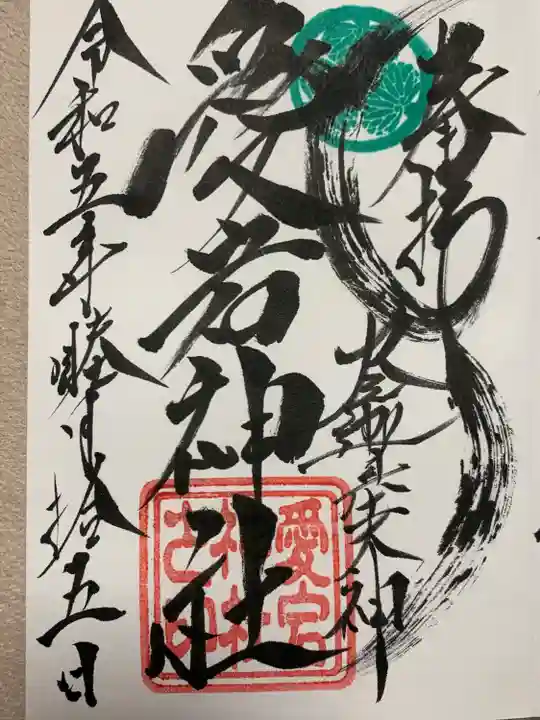 奉拝
愛宕神社
令和五年睦月拾五日
愛宕
神社
之印